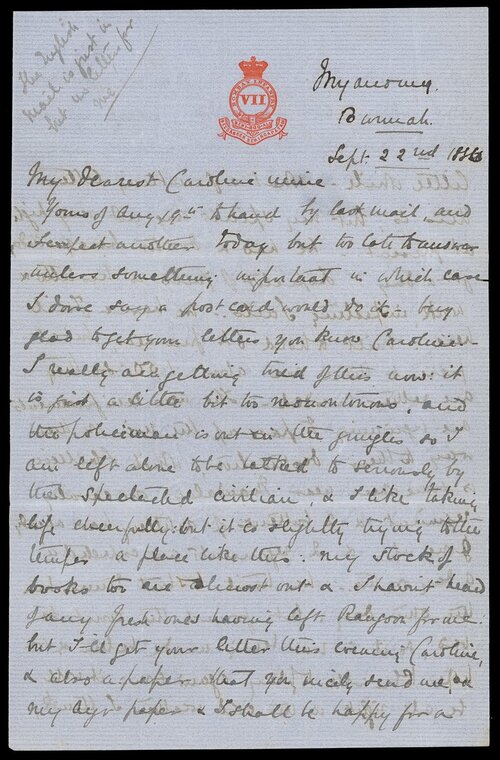 The English
mail is just in
but no letter for
me
BOMBAY INFANTRY
VII
Myanoung.
Burmah.
Sept. 22nd 1886
My dearest Caroline mine
Yours of Aug 19th to hand by last mail and
I expect another today but too late to answer
unless something important in which case
I dare say a post card would do it. Very
glad to get your letters, you know Caroline
I really am getting tired of this now: it
is just a little bit too monotonous, and
the policeman is out in the jungles so I
am left alone to be talked to seriously by
the spectacled civilian, & I like taking
life cheerfully: but it is slightly trying to the
temper a place like this. My stock of
books too are almost out & I haven't heard
of any fresh ones having left Rangoon for me:
but I'll get your letter this evening Caroline,
& also a paper that you nicely send me, &
my Ayr paper & I shall be happy for a